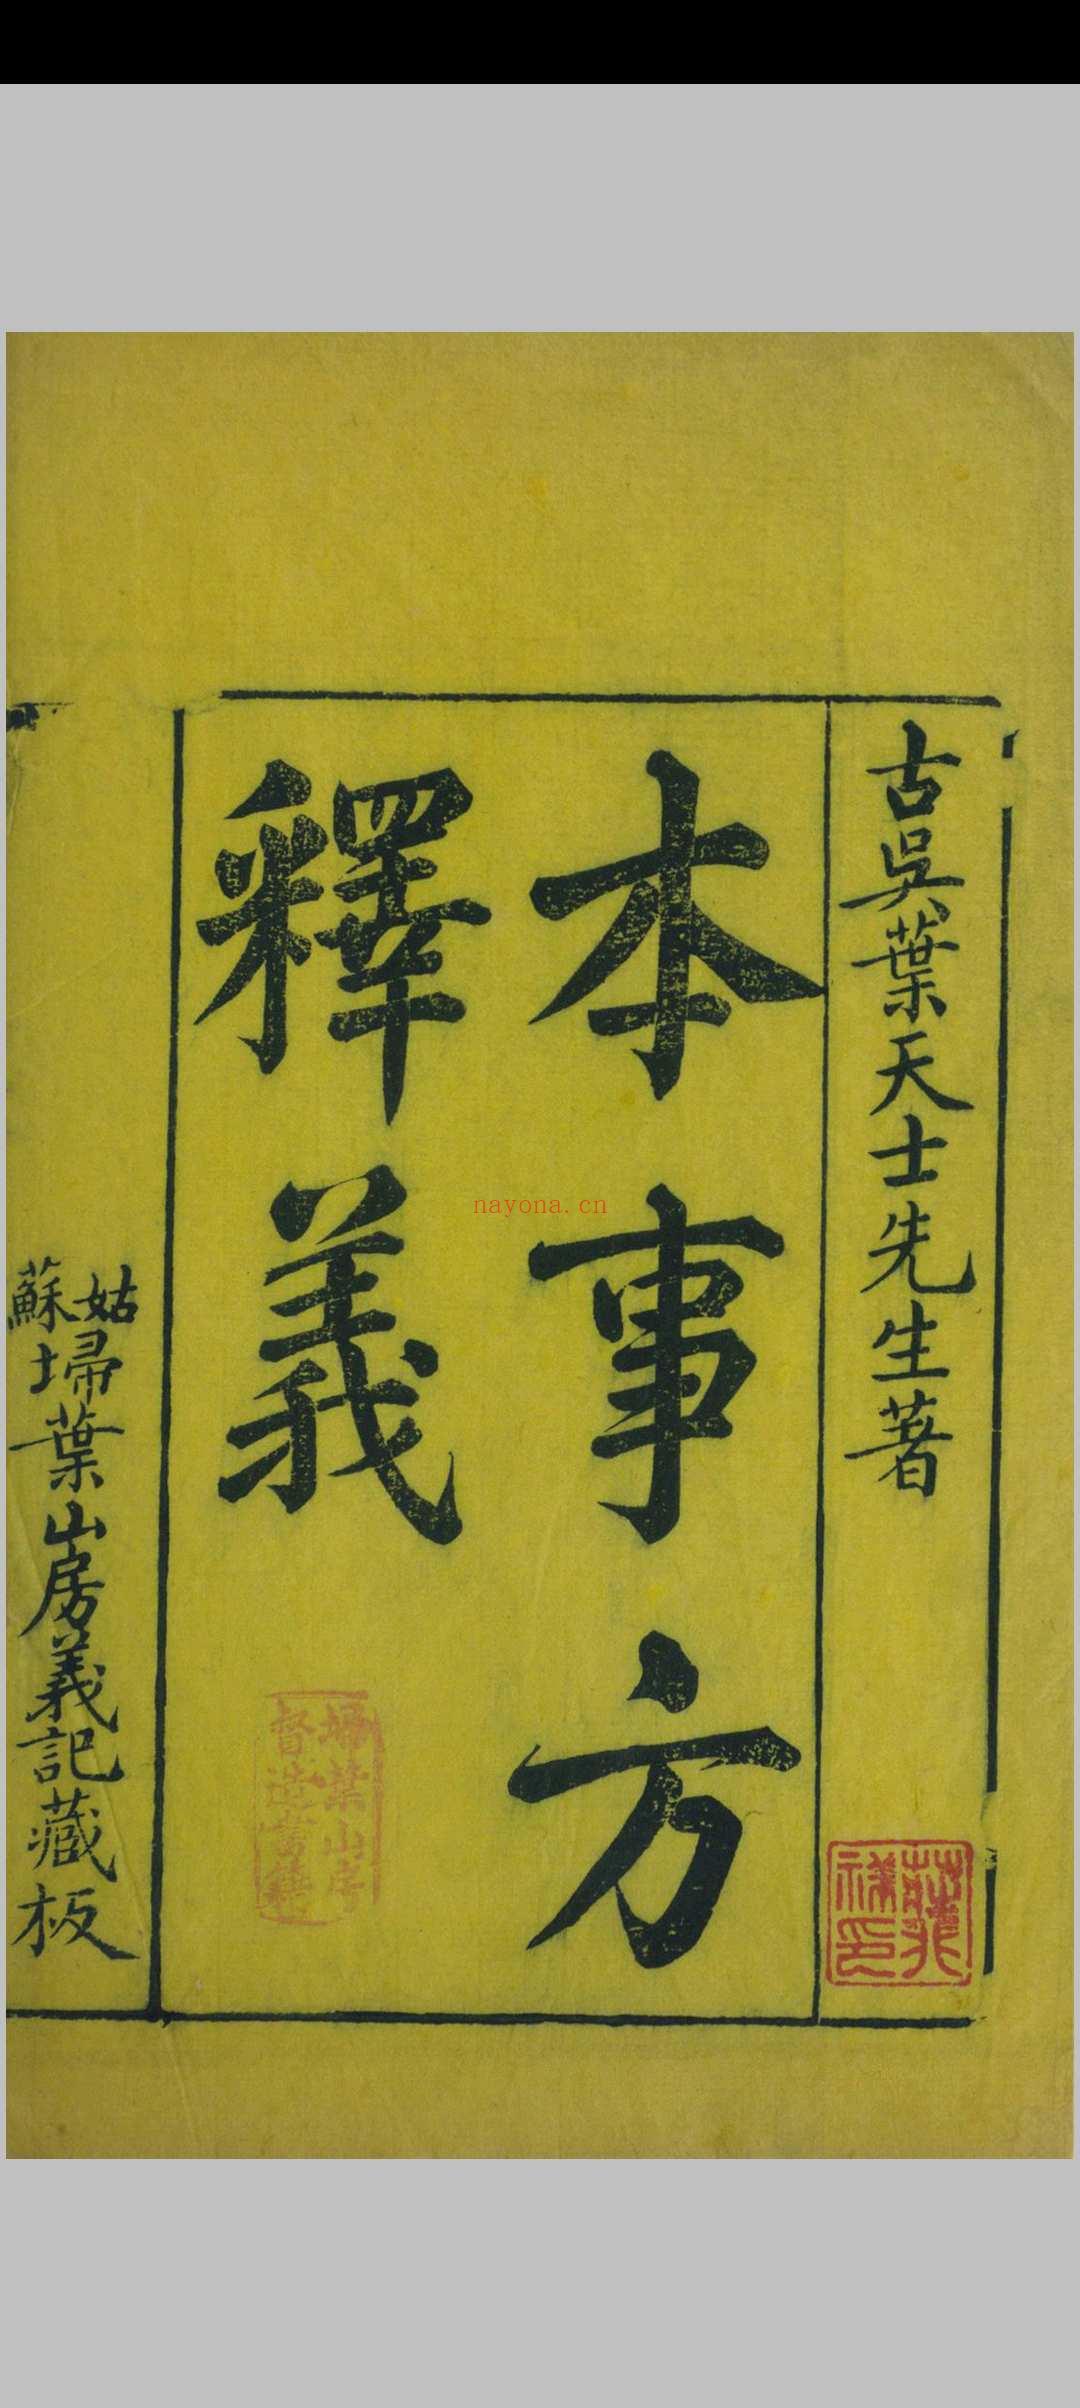 古吳葉天士先生著
本事方
釋義
姑蘇埽葉山房義記藏板
埽葉山房
督造書籍
nayona.cn